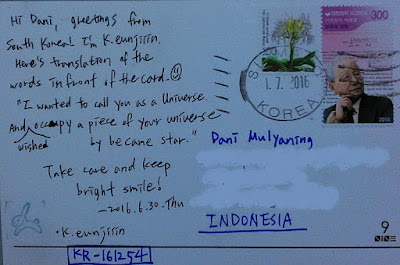 Hi Dani, greetings from
South Korea! I'm K.eunjiin.
Here's translation of the
words infront of the card.
"I wanted to call you as a Universe.
And wished occupy a piece of your universe
by became star."
Take care and keep
bright smile!
-2016.6.30.Thu
·K.eunjiin
KR-161254
300
1.7.2016
KOREA
300
2015
Dani Mulyaning
INDONESIA
9